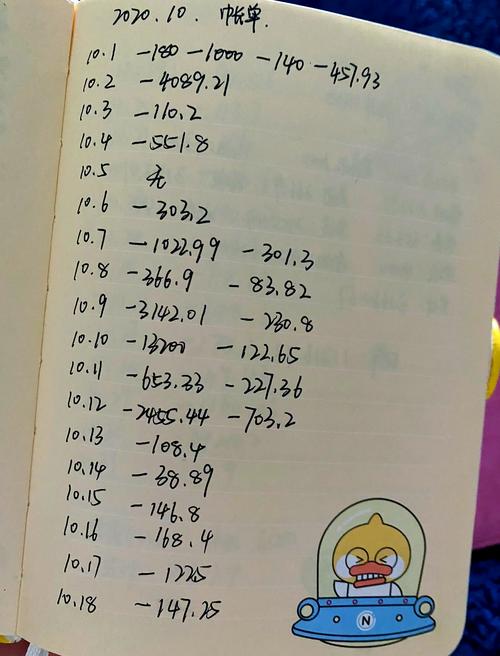 2020.10. 帐单.
10.1 -180 -1000 -140 -457.93
10.2 -4089.21
10.3 -110.2
10.4 -551.8
10.5 无
10.6 -303.2
10.7 -1022.99 -301.3
10.8 -366.9 -83.82
10.9 -3142.01 -230.8
10.10 -13200 -122.65
10.11 -653.33 -227.36
10.12 -2455.44 -703.2
10.13 -108.4
10.14 -38.89
10.15 -146.8
10.16 -168.4
10.17 -1225
10.18 -147.25
N